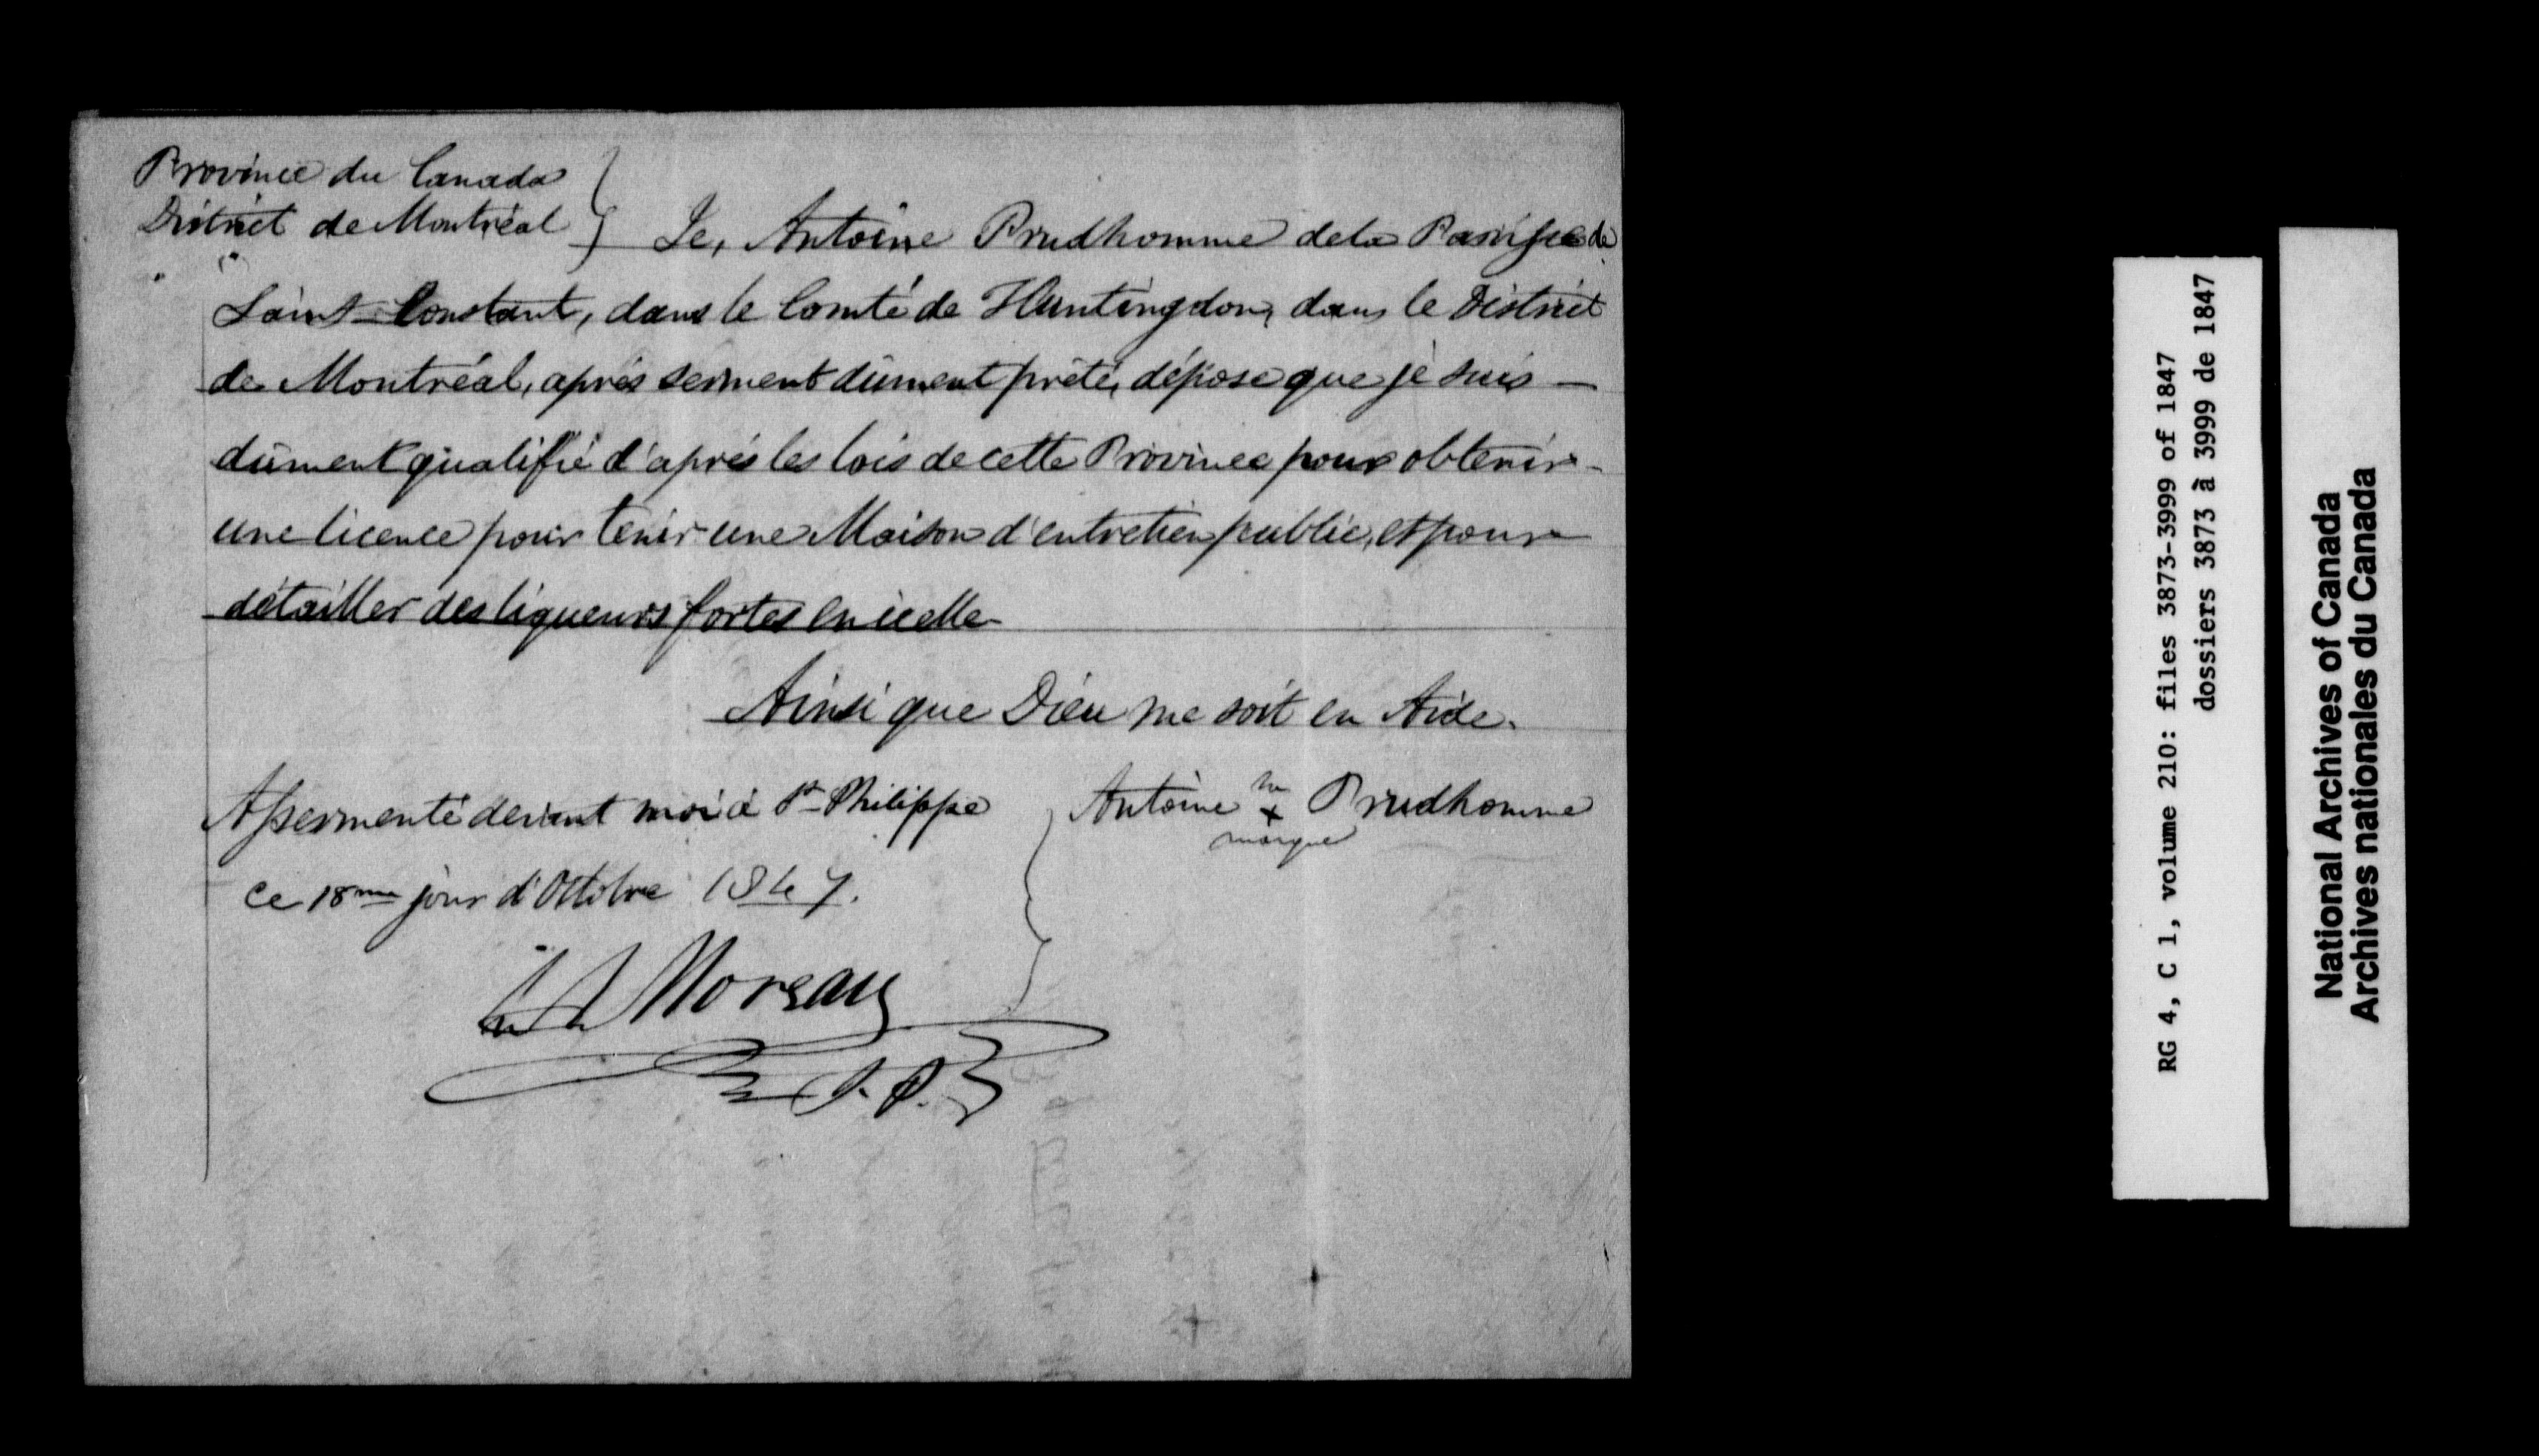 Province du Canada
District de Montréal } Je, Antoine Prudhomme de la Paroisse de
Saint-Constant, dans le Comté de Huntingdon, dans le District
de Montréal, après serment dûment prêté, dépose que je suis —
dûment qualifié d'après les lois de cette Province pour obtenir -
une licence pour tenir une Maison d'entretien public, et pour
détailler des liqueurs fortes en icelle
Ainsi que Dieu me soit en Aide.
Assermenté devant moi à St Philippe
ce 18me jour d'Octobre 1847.
Antoine sa + Prudhomme
marque
Moreau
J. P.
RG 4, C 1, volume 210: files 3873-3999 of 1847
dossiers 3873 à 3999 de 1847
National Archives of Canada
Archives nationales du Canada